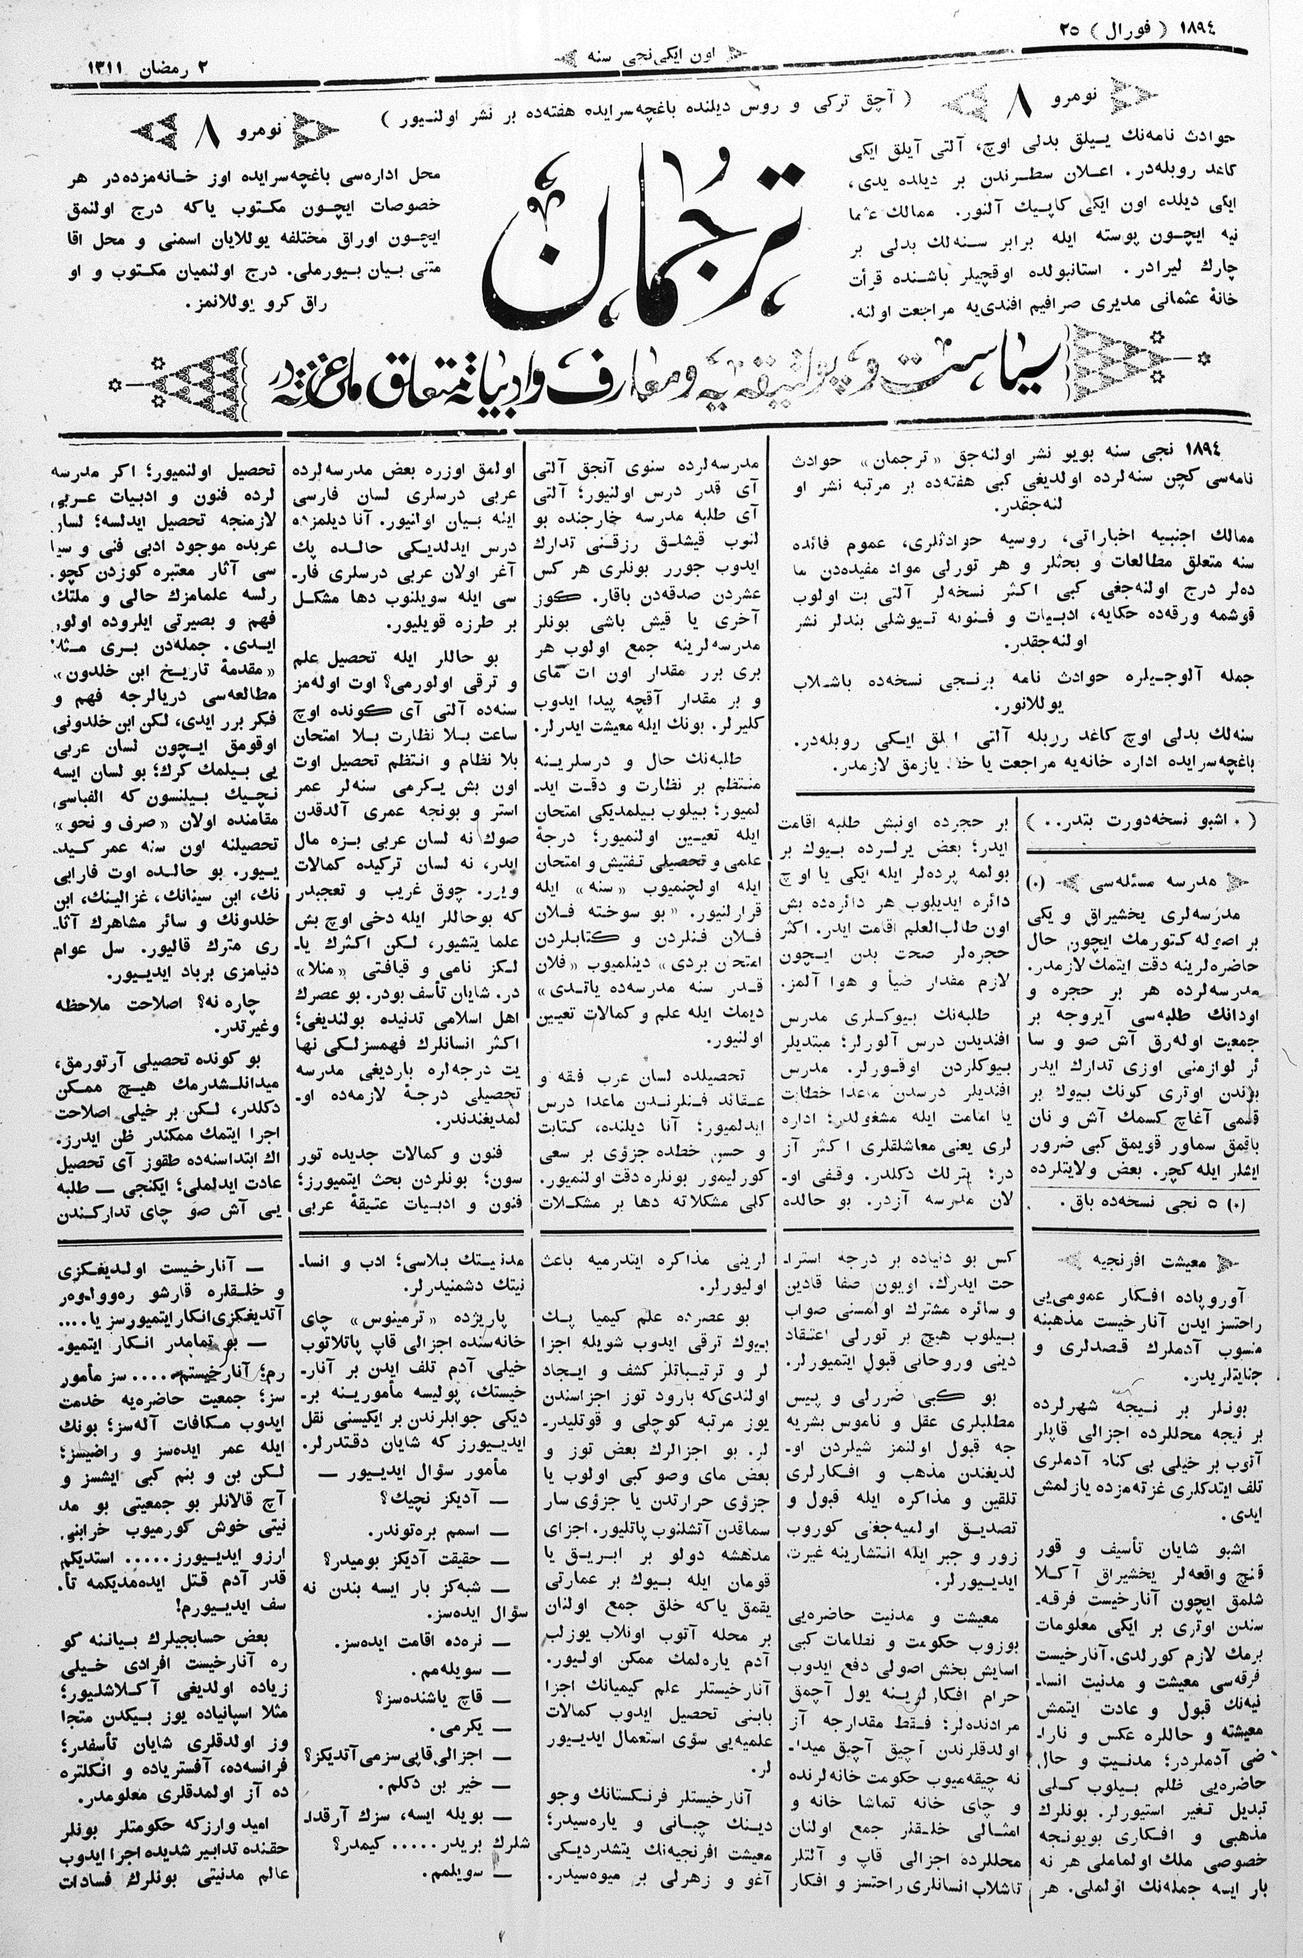 ١٨٩٤ ( فورال ) ٢٥
اون ایکی نجی سنه
٢ رمضان ١٣١١
نومرو ٨
( آچق ترکی و روس دیلنده باغچه‌سرایده هفته‌ده بر نشر اولنیور )
نومرو ٨
حوادث نامه‌نك ییلق بدلی اوچ، آلتی آیلق ایکی
کاغد روبله‌در. اعلان سطرندن بر دیلده یدی،
ایکی دیلده اون ایکی کاپیك آلنور. ممالك عثما
نیه ایچون پوسته ایله برابر سنه‌لك بدلی بر
چارك لیرادر. استانبولده اوقچیلر باشنده قرأت
خانهٔ عثمانی مدیری صرافیم افندی‌یه مراجعت اولنه.
ترجمان
محل اداره‌سی باغچه‌سرایده اوز خانه‌مزده‌در هر
خصوصات ایچون مکتوب یاکه درج اولنمق
ایچون اوراق مختلفه یوللایان اسمنی و محل اقا
متنی بیان بیورملی. درج اولنمیان مکتوب و او
راق کرو یوللانمز.
سیاست و پولتیقه‌یه و معارف و ادبیاته متعلق ملی غزته‌در
١٨٩٤ نجی سنه بویو نشر اولنه‌جق «ترجمان» حوادث
نامه‌سی کچن سنه‌لرده اولدیغی کبی هفته‌ده بر مرتبه نشر او
لنه‌جقدر.
ممالك اجنبیه اخباراتی، روسیه حوادثلری، عموم فائده
سنه متعلق مطالعات و بحثلر و هر تورلی مواد مفیده‌دن ما
ده‌لر درج اولنه‌جغی کبی اکثر نسخه‌لر آلتی بت اولوب
قوشمه ورقه‌ده حکایه، ادبیات و فنونه تیوشلی بندلر نشر
اولنه‌جقدر.
جمله آلوجیلره حوادث نامه برنجی نسخه‌ده باشلاب
یوللانور.
سنه‌لك بدلی اوچ کاغد روبله آلتی ایلق ایکی روبله‌در.
باغچه‌سرایده اداره خانه‌یه مراجعت یا خط یازمق لازمدر.
( ٠ اشبو نسخه دورت بتدر. ٠ )
مدرسه مسئله‌سی (٠)
مدرسه‌لری یخشیراق و یکی
بر اصوله کتورمك ایچون حال
حاضره‌لرینه دقت ایتمك لازمدر.
مدرسه‌لرده هر بر حجره و
اودانك طلبه‌سی آیروجه بر
جمعیت اوله‌رق آش صو و سا
ئر لوازمنی اوزی تدارك ایدر
بوندن اوتری کونك بیوك بر
قسمی آغاچ کسمك آش و نان
باقمق سماور قویمق کبی ضرور
ایشلر ایله کچر. بعض ولایتلرده
(٠) ٥ نجی نسخه‌ده باق.
بر حجرده اونبش طلبه اقامت
ایدر؛ بعض یرلرده بیوك بر
بولمه پرده‌لر ایله ایکی یا اوچ
دائره ایدیلوب هر دائره‌ده بش
اون طالب‌العلم اقامت ایدر. اکثر
حجره‌لر صحت بدن ایچون
لازم مقدار ضیأ و هوا آلمز.
طلبه‌نك بیوکلری مدرس
افندیدن درس آلورلر؛ مبتدیلر
بیوکلردن اوقورلر. مدرس
افندیلر درسدن ماعدا خطابت
یا امامت ایله مشغولدر؛ اداره
لری یعنی معاشلقلری اکثر آز
در؛ یترلك دکلدر. وقفی او-
لان مدرسه آزدر. بو حالده
مدرسه‌لرده سنوی آنجق آلتی
آی قدر درس اولنیور؛ آلتی
آی طلبه مدرسه خارجنده بو
لنوب قیشلق رزقنی تدارك
ایدوب جورر بونلری هرکس
عشردن صدقه‌دن باقار. کوز
آخری یا قیش باشی بونلر
مدرسه‌لرینه جمع اولوب هر
بری برر مقدار اون ات مای
و بر مقدار آقچه پیدا ایدوب
کلیرلر. بونك ایله معیشت ایدرلر.
طلبه‌نك حال و درسلرینه
منتظم بر نظارت و دقت اید-
لمیور؛ بیلوب بیلمدیکی امتحان
ایله تعیین اولنمیور؛ درجهٔ
علمی و تحصیلی تفتیش و امتحان
ایله اولچنمیوب «سنه» ایله
قرارلنیور. «بو سوخته فلان
فلان فنلردن و کتابلردن
امتحان بردی» دینلمیوب «فلان
قدر سنه مدرسه‌ده یاتدی»
دیمك ایله علم و کمالات تعیین
اولنیور.
تحصیلده لسان عرب فقه و
عقائد فنلرندن ماعدا درس
ایدلمیور؛ آنا دیلنده، کتابت
و حسن خطده جزؤی بر سعی
کورلیمور بونلره دقت اولنمیور.
کلی مشکلاته دها بر مشکلات
اولمق اوزره بعض مدرسه‌لرده
عربی درسلری لسان فارسی
ایله بیان اولنیور. آنا دیلمزده
درس ایدلدیکی حالده پك
آغر اولان عربی درسلری فار-
سی ایله سویلنوب دها مشکل
بر طرزه قویلیور.
بو حاللر ایله تحصیل علم
و ترقی اولورمی؟ اوت اوله‌مز
سنه‌ده آلتی آی کونده اوچ
ساعت بلا نظارت بلا امتحان
بلا نظام و انتظم تحصیل اوت
اون بش یکرمی سنه‌لر عمر
استر و بونجه عمری آلدقدن
صوك نه لسان عربی بزه مال
ایدر، نه لسان ترکیده کمالات
ویرر. چوق غریب و تعجبدر
که بوحاللر ایله دخی اوچ بش
علما یتشیور، لکن اکثرك یا-
لکز نامی و قیافتی «منلا»
در. شایان تأسف بودر. بو عصرك
اهل اسلامی تدنیده بولندیغی؛
اکثر انسانلرك فهمسزلکی نها
یت درجه‌لره باردیغی مدرسه
تحصیلی درجهٔ لازمه‌ده او-
لمدیغندندر.
فنون و کمالات جدیده تور
سون؛ بونلردن بحث ایتمیورز؛
فنون و ادبیات عتیقهٔ عربی
تحصیل اولنمیور؛ اکر مدرسه
لرده فنون و ادبیات عربی
لازمنجه تحصیل ایدلسه؛ لسان
عربده موجود ادبی فنی و سیا
سی آثار معتبره کوزدن کچو.
رلسه علمامزك حالی و ملتك
فهم و بصیرتی ایلروده اولور
ایدی. جمله‌دن بری مثلا
«مقدمهٔ تاریخ ابن خلدون»
مطالعه‌سی دریالرجه فهم و
فکر برر ایدی، لکن ابن خلدونی
اوقومق ایچون لسان عربی
یی بیلمك کرك؛ بو لسان ایسه
نچیك بیلنسون که الفباسی
مقامنده اولان «صرف و نحو»
تحصیلنه اون سنه عمر کید-
ییور. بو حالده اوت فارابی
نك، ابن سینانك، غزالینك، ابن
خلدونك و سائر مشاهرك آثا-
ری مترك قالیور. سل عوام
دنیامزی برباد ایدییور.
چاره نه؟ اصلاحت ملاحظه
وغیرتدر.
بو کونده تحصیلی آرتورمق،
میدانلشدرمك هیچ ممکن
دکلدر، لکن بر خیلی اصلاحت
اجرا ایتمك ممکندر ظن ایدرز.
اك ابتدا سنه‌ده طقوز آی تحصیل
عادت ایدلملی؛ ایکنجی — طلبه
یی آش صو چای تدارکندن
معیشت افرنجیه
آوروپاده افکار عمومی‌یی
راحتسز ایدن آنارخیست مذهبنه
منسوب آدملرك قصدلری و
جنایتلریدر.
بونلر بر نیجه شهرلرده
بر نیجه محللرده اجزالی قاپلر
آتوب بر خیلی بی کناه آدملری
تلف ایتدکلری غزته‌مزده یازلمش
ایدی.
اشبو شایان تأسیف و قور
قنچ واقعه‌لر یخشیراق آکلا
شلمق ایچون آنارخیست فرقه-
سندن اوتری بر ایکی معلومات
برمك لازم کورلدی. آنارخیست
فرقه‌سی معیشت و مدنیت انسا-
نیه‌نك قبول و عادت ایتمش
معیشته و حاللره عکس و نارا-
ضی آدملردر؛ مدنیت و حال
حاضره‌یی ظلم بیلوب کلی
تبدیل تغیر استیورلر. بونلرك
مذهبی و افکاری بویونجه
خصوصی ملك اولماملی هر نه
بار ایسه جمله‌نك اولملی. هر
کس بو دنیاده بر درجه استرا-
حت ایدرك، اویون صفا قادین
و سائره مشترك اولمسنی صواب
بیلوب هیچ بر تورلی اعتقاد
دینی وروحانی قبول ایتمیورلر.
بو کبی ضررلی و پیس
مطلبلری عقل و ناموس بشریه
جه قبول اولنمز شیلردن او-
لدیغندن مذهب و افکارلری
تلقین و مذاکره ایله قبول و
تصدیق اولمیه‌جغنی کوروب
زور و جبر ایله انتشارینه غیرت
ایدیورلر.
معیشت و مدنیت حاضره‌یی
بوزوب حکومت و نظامات کبی
اسایش بخش اصولی دفع ایدوب
حرام افکارلرینه یول آچمق
مرادنده‌لر؛ فقط مقدارجه آز
اولدقلرندن آچیق آچیق میدا-
نه چیقه‌میوب حکومت خانه‌لرنده
و چای خانه تماشا خانه و
امثالی خلقلر جمع اولنان
محللرده اجزالی قاپ و آلتلر
تاشلاب انسانلری راحتسز و افکار
لرینی مذاکره ایتدرمیه باعث
اولیورلر.
بو عصرده علم کیمیا پك
بیوك ترقی ایدوب شویله اجزا
لر و ترتیباتلر کشف و ایجاد
اولندی که بارود توز اجزاسندن
یوز مرتبه کوچلی و قوتلیدر-
لر. بو اجزالرك بعض توز و
بعض مای وصو کبی اولوب یا
جزؤی حرارتدن یا جزؤی سار
سماقدن آتشلنوب پاتلیور. اجزای
مدهشه دولو بر ابریق یا
قومان ایله بیوك بر عمارتی
یقمق یاکه خلق جمع اولنان
بر محله آتوب اونلاب یوزلب
آدم یاره‌لمك ممکن اولیور.
آنارخیستلر علم کیمیانك اجزا
بابنی تحصیل ایدوب کمالات
علمیه‌یی سؤی استعمال ایدیور
لر.
آنارخیستلر فرنکستانك وجو
دینك چبانی و یاره‌سیدر؛
معیشت افرنجیه‌نك یتشدردیکی
آغو و زهرلی بر میوه‌سیدر.
مدنیتك بلاسی؛ ادب و انسا-
نیتك دشمنیدرلر.
پاریژده «ترمینوس» چای
خانه‌سنده اجزالی قاپ پاتلاتوب
خیلی آدم تلف ایدن بر آنار-
خیستك، پولیسه مأمورینه بر-
دیکی جوابلرندن بر ایکیسنی نقل
ایدییورز که شایان دقتدرلر.
مأمور سؤال ایدییور —
— آدیکز نچیك؟
— اسمم بره‌توندر.
— حقیقت آدیکز بومیدر؟
— شبه‌کز بار ایسه بندن نه
سؤال ایده‌سز.
— نره‌ده اقامت ایده‌سز.
— سویله‌مم.
— قاچ یاشنده‌سز؟
— یکرمی.
— اجزالی قاپی سزمی آتدیکز؟
— خیر بن دکلم.
— بویله ایسه، سزك آرقدا-
شلرك بریدر ..... کیمدر؟
— سویلمم.
— آنارخیست اولدیغکزی
و خلقلره قارشو ره‌وولوه‌ر
آتدیغکزی انکار ایتمیورسز یا ....
— بو تمامدر انکار ایتمیو-
رم؛ آنارخیستم..... سز مأمور
سز؛ جمعیت حاضره‌یه خدمت
ایدوب مکافات آله‌سز؛ بونك
ایله عمر ایده‌سز و راضیسز؛
لکن بن و بنم کبی ایشسز و
آچ قالانلر بو جمعیتی بو مد
نیتی خوش کورمیوب خرابنی
ارزو ایدییورز ..... استدیکم
قدر آدم قتل ایده‌مدیکمه تأ-
سف ایدییورم!
بعض حسابجیلرك بیاننه کو
ره آنارخیست افرادی خیلی
زیاده اولدیغی آکلاشلیور؛
مثلا اسپانیاده یوز بیکدن متجا
وز اولدقلری شایان تأسفدر؛
فرانسه‌ده، آفستریاده و انکلتره
ده آز اولمدقلری معلومدر.
امید وارز که حکومتلر بونلر
حقنده تدابیر شدیده اجرا ایدوب
عالم مدنیتی بونلرك فسادات